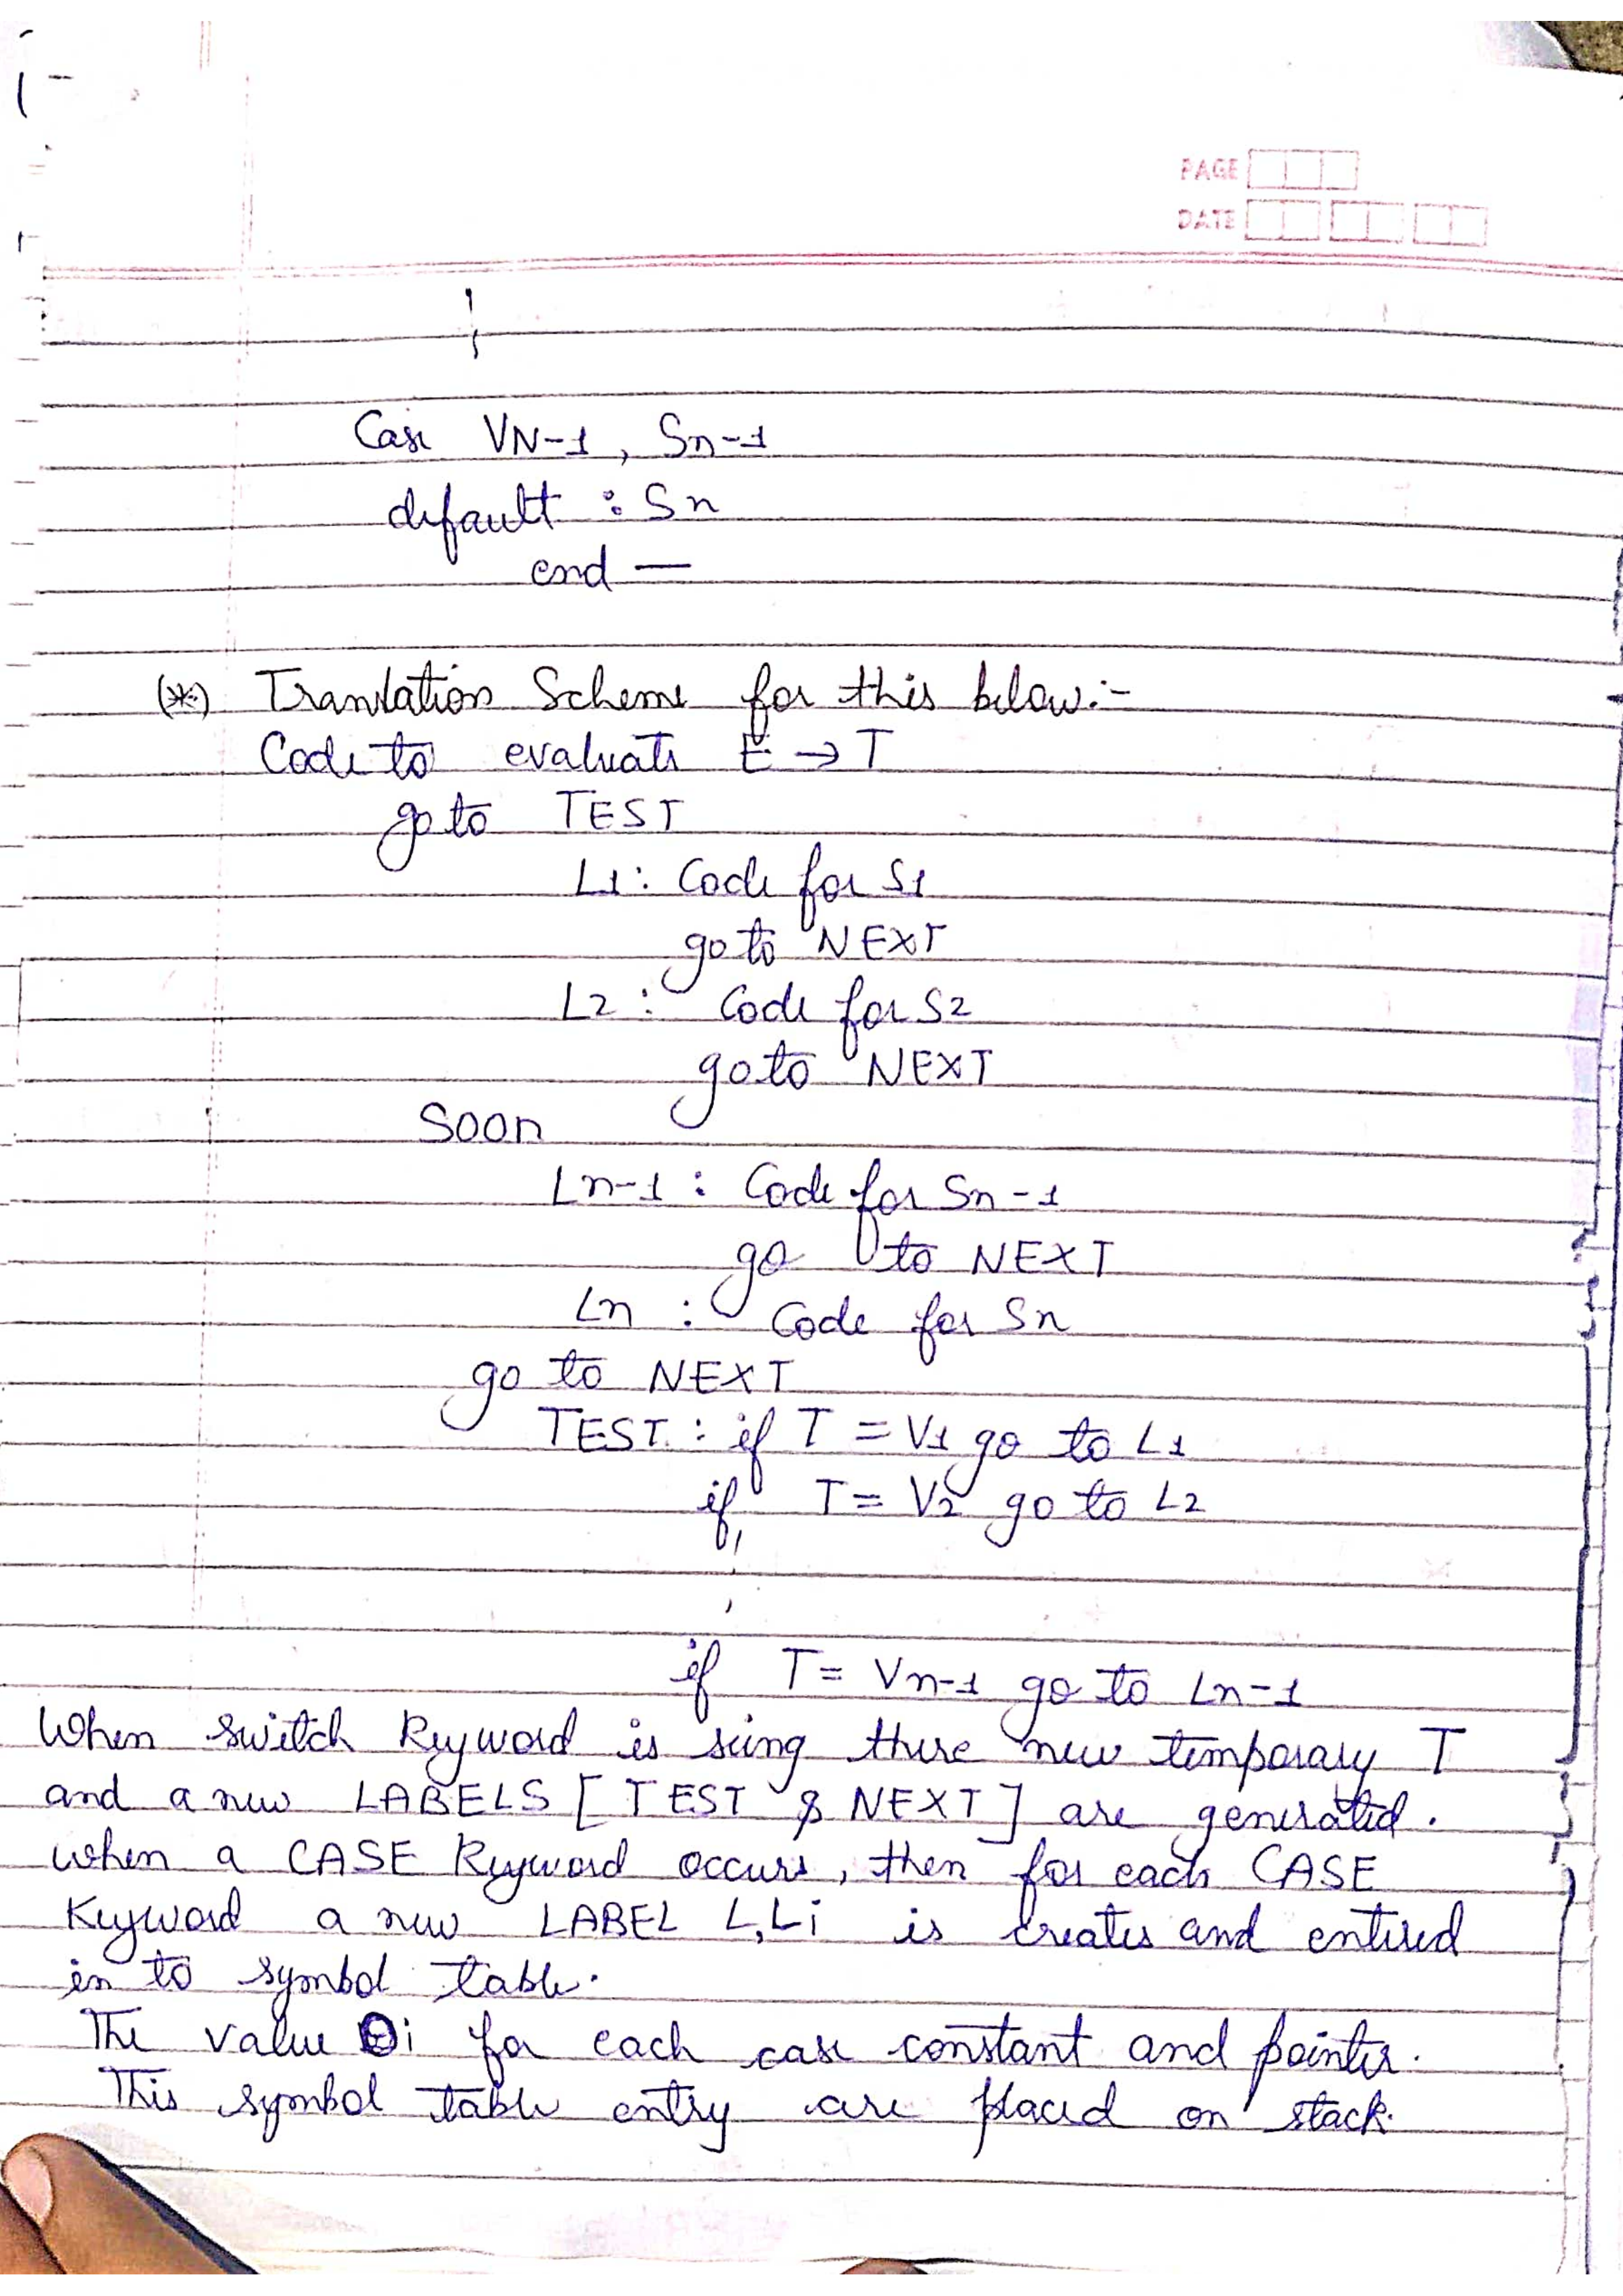 PAGE
DATE
Case VN-1, Sn-1
default : Sn
end —
(*) Translation Scheme for this below:-
Code to evaluate E → T
go to TEST
L1: Code for S1
go to NEXT
L2 : Code for S2
go to NEXT
Soon
Ln-1 : Code for Sn-1
go to NEXT
Ln : Code for Sn
go to NEXT
TEST : if T = V1 go to L1
if T = V2 go to L2
if T = Vn-1 go to Ln-1
When switch Keyword is seing these new temporary T
and a new LABELS [TEST & NEXT] are generated.
when a CASE Keyword occurs, then for each CASE
Keyword a new LABEL L,Li is creates and entired
in to symbol table.
The value i for each case constant and pointer.
This symbol table entry are placed on stack.